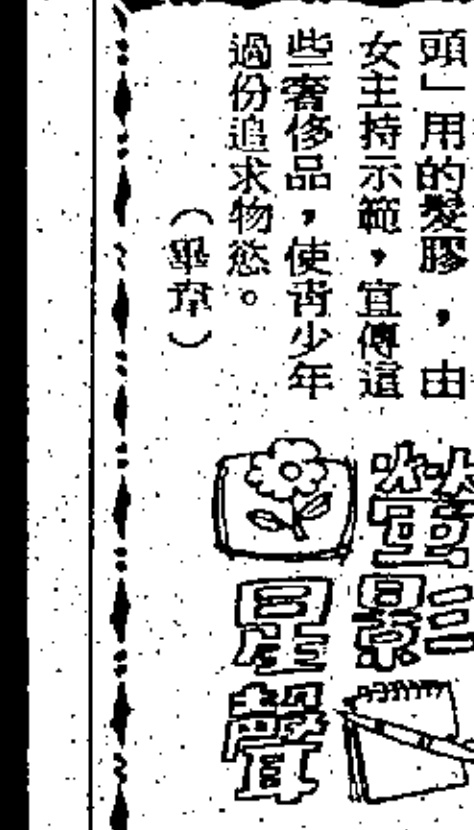 頭」用的髮膠，由
女主持示範，宣傳這
些奢侈品，使青少年
過份追求物慾。
（畢韋）
螢影
星聲